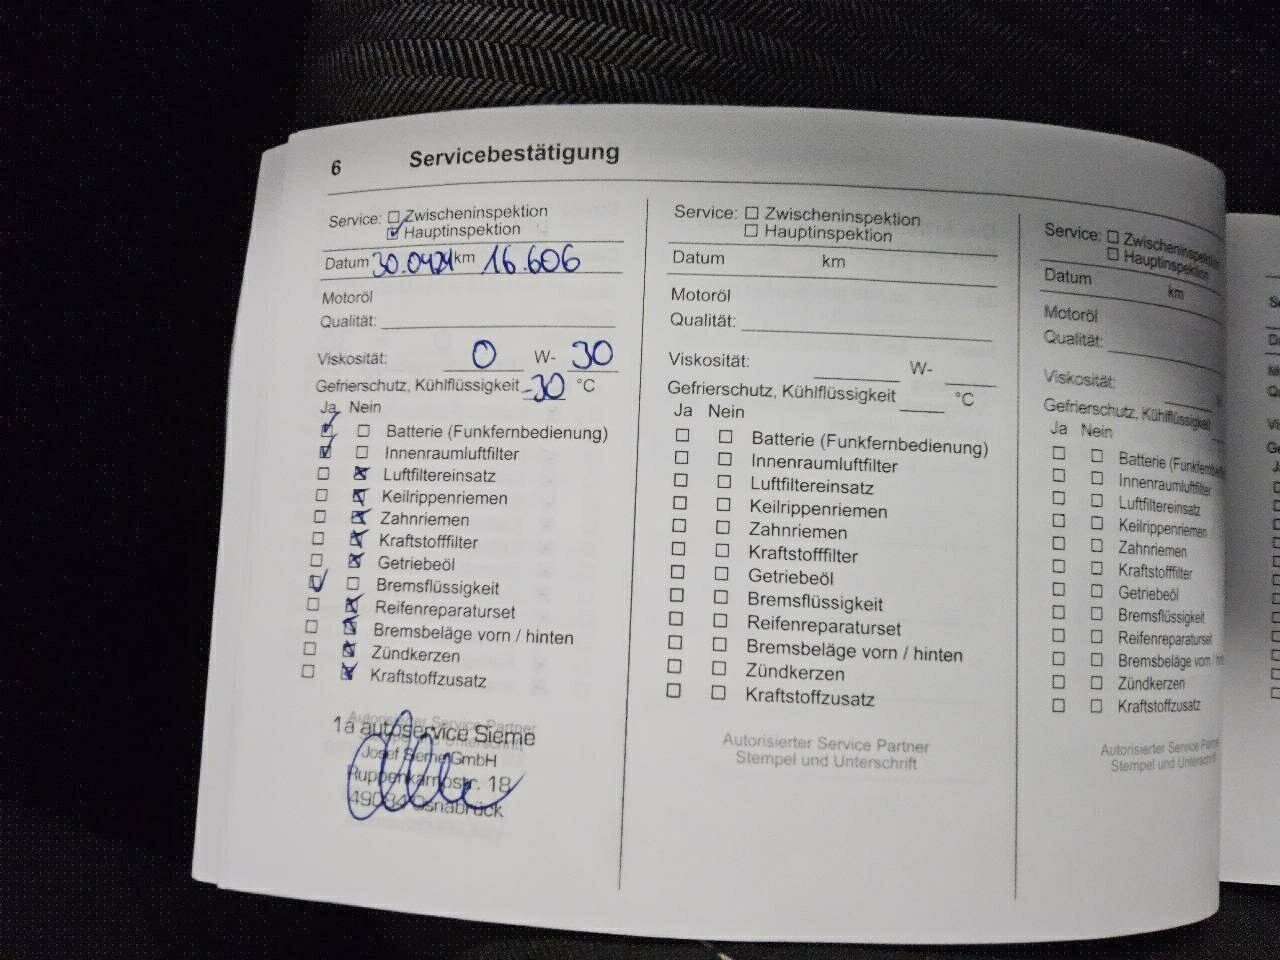 6 Servicebestätigung
Service: Zwischeninspektion
Hauptinspektion
Datum 30.0424 km 16.606
Motoröl
Qualität:
Viskosität: 0 W- 30
Gefrierschutz, Kühlflüssigkeit -30 °C
Ja Nein
Batterie (Funkfernbedienung)
Innenraumluftfilter
Luftfiltereinsatz
Keilrippenriemen
Zahnriemen
Kraftstofffilter
Getriebeöl
Bremsflüssigkeit
Reifenreparaturset
Bremsbeläge vorn / hinten
Zündkerzen
Kraftstoffzusatz
Autorisierter Service Partner
1a autoservice Sieme
Josef Sieme GmbH
Ruppenkampstr. 18
49084 Osnabrück
Service: Zwischeninspektion
Hauptinspektion
Datum km
Motoröl
Qualität:
Viskosität: W-
Gefrierschutz, Kühlflüssigkeit °C
Ja Nein
Batterie (Funkfernbedienung)
Innenraumluftfilter
Luftfiltereinsatz
Keilrippenriemen
Zahnriemen
Kraftstofffilter
Getriebeöl
Bremsflüssigkeit
Reifenreparaturset
Bremsbeläge vorn / hinten
Zündkerzen
Kraftstoffzusatz
Autorisierter Service Partner
Stempel und Unterschrift
Service: Zwischeninspektion
Hauptinspektion
Datum km
Motoröl
Qualität:
Viskosität:
Gefrierschutz, Kühlflüssigkeit
Ja Nein
Batterie (Funkfernbed
Innenraumluftfilter
Luftfiltereinsatz
Keilrippenriemen
Zahnriemen
Kraftstofffilter
Getriebeöl
Bremsflüssigkeit
Reifenreparaturset
Bremsbeläge vorn /
Zündkerzen
Kraftstoffzusatz
Autorisierter Service Partn
Stempel und Unterschrift